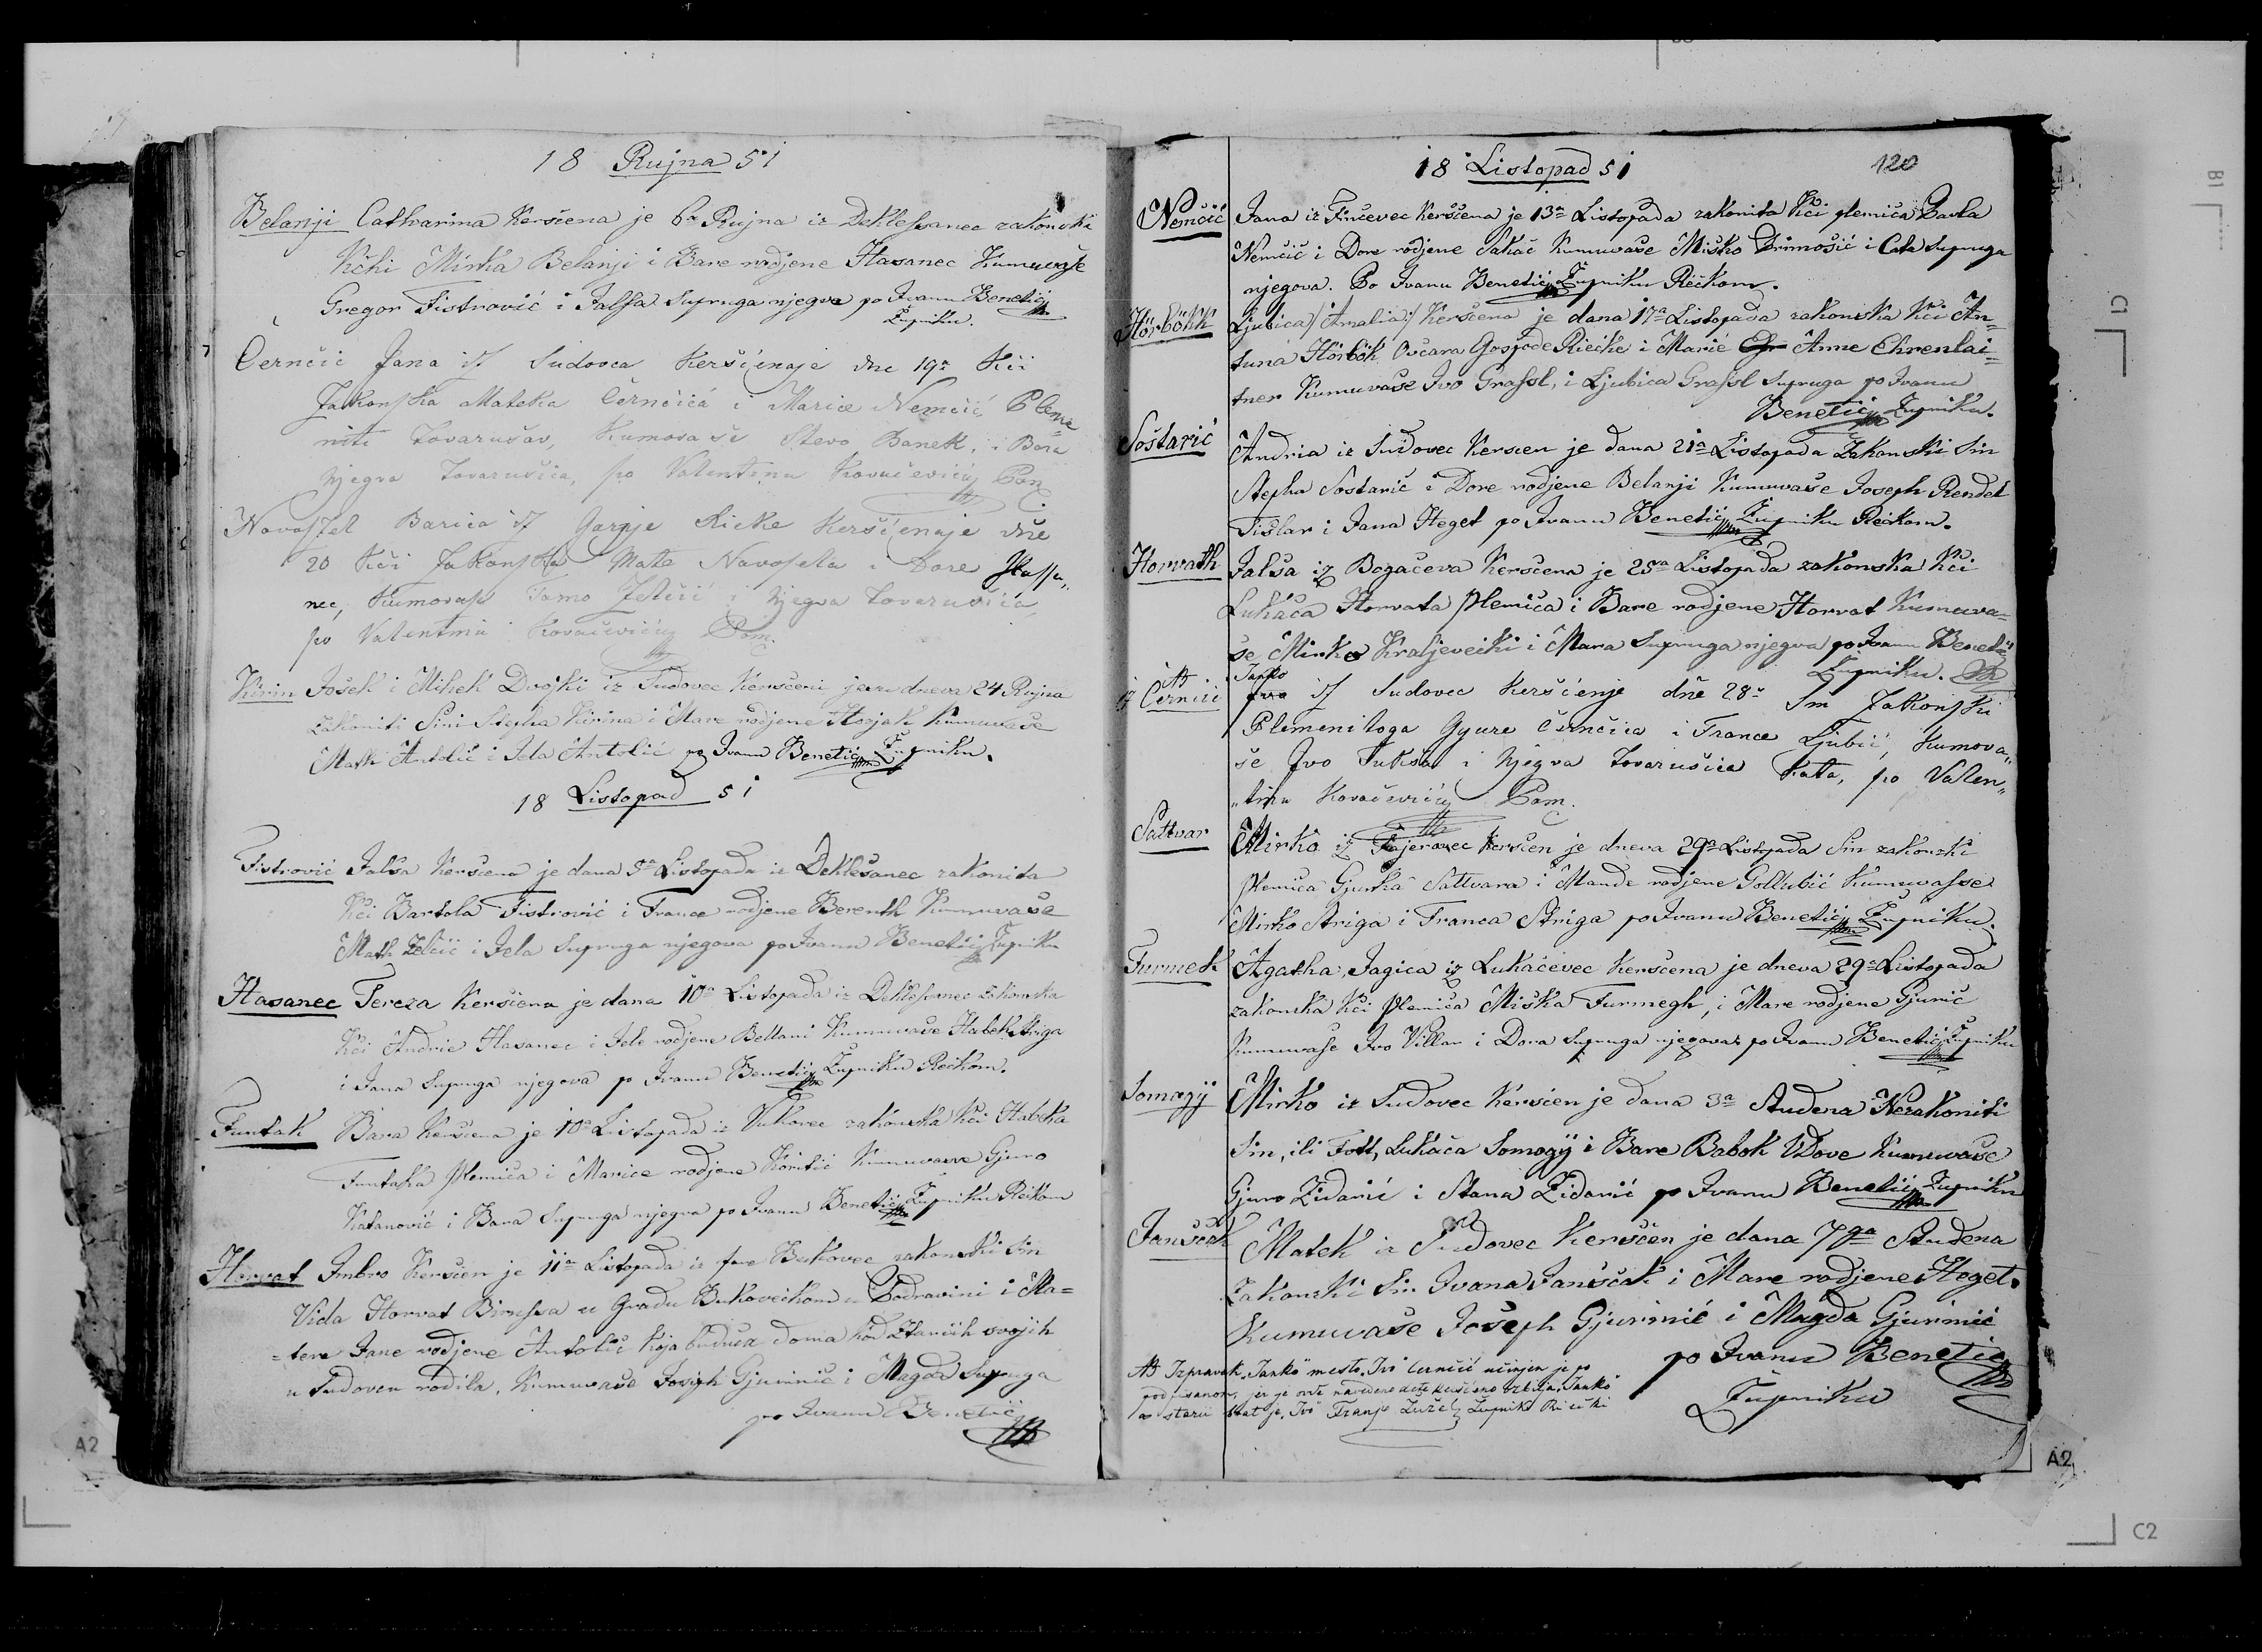 18 Rujna 51
Belanji Catharina Kersčena je 6a Rujna iz Deklessanec zakonski
Kčhi Mirka Belanji i Bare rodjene Hasanec Kumuvasse
Gregor Fistrović i Jalssa Supruga njegva po Ivanu Benetić
Župniku.
Černčić Jana iz Sudovca Keršćenaje dne 19a Kći
Zakonska Mateka Černčića i Marice Nemčić Pleme
niti Tovarušov, Kumovaše Stevo Banek, i Bara
Njegva Tovarušica, po Valentinu Kovačevićy Pom
Novossel Barica iz Garnje Rieke Keršćenaje dne
20 Kći Zakonska Mate Novosela i Dore Hassa„
nec, Kumovaše Tomo Zelčić i Njegva Tovarušica
po Valentinu Kovačevićy Pom.
Kirin Jošek i Mihek Dvojki iz Sudovec Kersčeni jesu dneva 24 Rujna
zakoniti Sini Stepha Kirina i Mare rodjene Horjak Kumuvaše
Math Antolić i Jela Antolić po Ivanu Benetić Župniku.
18 Listopad 51
Fistrović Jalsa Kersčena je dana 5a Listopada iz Deklešanec zakonita
Kči Bartola Fistrović i France rodjene Berenth Kumuvaše
Math Zelčić i Jela Supruga njegova po Ivanu Benetić Župniku
Hasanec Tereza Kersčena je dana 10a Listopada iz Deklessanec zakonska
Kči Andrie Hasanec i Jele rodjene Bellani Kumuvaše Habek Striga
i Jana Supruga njegova po Ivanu Benetić Župniku Rečkom.
Funtak Bara Kersčena je 10a Listopada iz Vukovec zakonska kči Habeka
Funtaka plemića i Marice rodjene Koritić Kumuvasse Gjuro
Katanović i Bara Supruga njegva po Ivanu Benetić Župniku Rečkom
Horvat Imbro Kersčen je 11a Listopada iz Bukovec zakonski sin
Vida Horvat Birussa u Gradu Bukovečkom u Podravini i Ma=
=tere Jane rodjene Antolić koja buduća doma kod Starijih svojih
u Sudovcu rodila. Kumuvaše Joseph Gjurinić i Magda Supruga
po Ivanu Benetić
18 Listopad 51
120
Nemčić Jana iz Finčevec Kersčena je 13a Listopada zakonita Kči plemića Pavla
Nemčić i Dore rodjene Sakač Kumuvaše Miško Drimošić i Cata Supruga
njegova. Po Ivanu Benetić Župniku Rečkom.
Hörbökk Ljubica /:Amalia:/ Kersčena je dana 17a Listopada zakonska Kči An=
tuna Hörbök Ovčara Gospode Riečke i Marie Anne Ehrenlai=
tner Kumuvaše Ivo Grassl, i Ljubica Grassl Supruga po Ivanu
Benetić Župniku.
Soštarić Andria iz Sudovec Kerscen je dana 21a Listopada Zakonski Sin
Stepha Sostarić i Dore rodjene Belanji Kumuvaše Joseph Rendel
Tišlar i Jana Heget po Ivanu Benetić Župniku Rečkom.
Horvath Jalša iz Bogačeva Kersčena je 25a Listopada zakonska Kči
Lukača Horvata Plemića i Bare rodjene Horvat Kumuva=
še Mirko Kraljevečki i Mara Supruga njegva po Ivanu Benetić
Župniku.
Janko
Černčić Ivo iz Sudovec Keršćenje dne 28a Sin Zakonski
Plemenitoga Gyure Černčića i France Ljubić, Kumova„
še Ivo Tukša i Njegva Tovarušica Kata, po Valen„
„tinu Kovačevićy Pom.
Sattvar Mirko iz Fajerovec Kersčen je dneva 29a Listopada Sin zakonski
plemića Gjurka Sattvara i Mande rodjene Gollubić Kumuvasse
Mirko Striga i Franca Striga po Ivanu Benetić Župniku.
Furmek Agatha, Jagica iz Lukačevec Kersčena je dneva 29a Listopada
zakonska Kči plemića Miška Furmegh, i Mare rodjene Gjurić
Kumuvasse Ivo Villar i Dora Supruga njegova po Ivanu Benetić Župniku
Somogÿ Mirko iz Sudovec Kersčen je dana 3a Studena Nezakoniti
Sin, ili Fott, Lukača Somogÿ i Bare Babok Vdove Kumuvaše
Gjuro Židarić i Stana Židarić po Ivanu Benetić Župniku
Janščak Matek iz Sudovec Kersčen je dana 7ga Studena
Zakonski Sin Ivana Janščak i Mare rodjene Heget.
Kumuvaše Joseph Gjurinić i Magda Gjurinić
po Ivanu Benetić
Župniku
Izpravak „Janko“ mesto „Ivo“ Černčić učinjen je po
podpisanom, jer je ovdi navedeno dete kersćeno „Janko“
a starii brat je „Ivo“ Franjo Župnik Riečki
A2
A2
B1
C1
C2